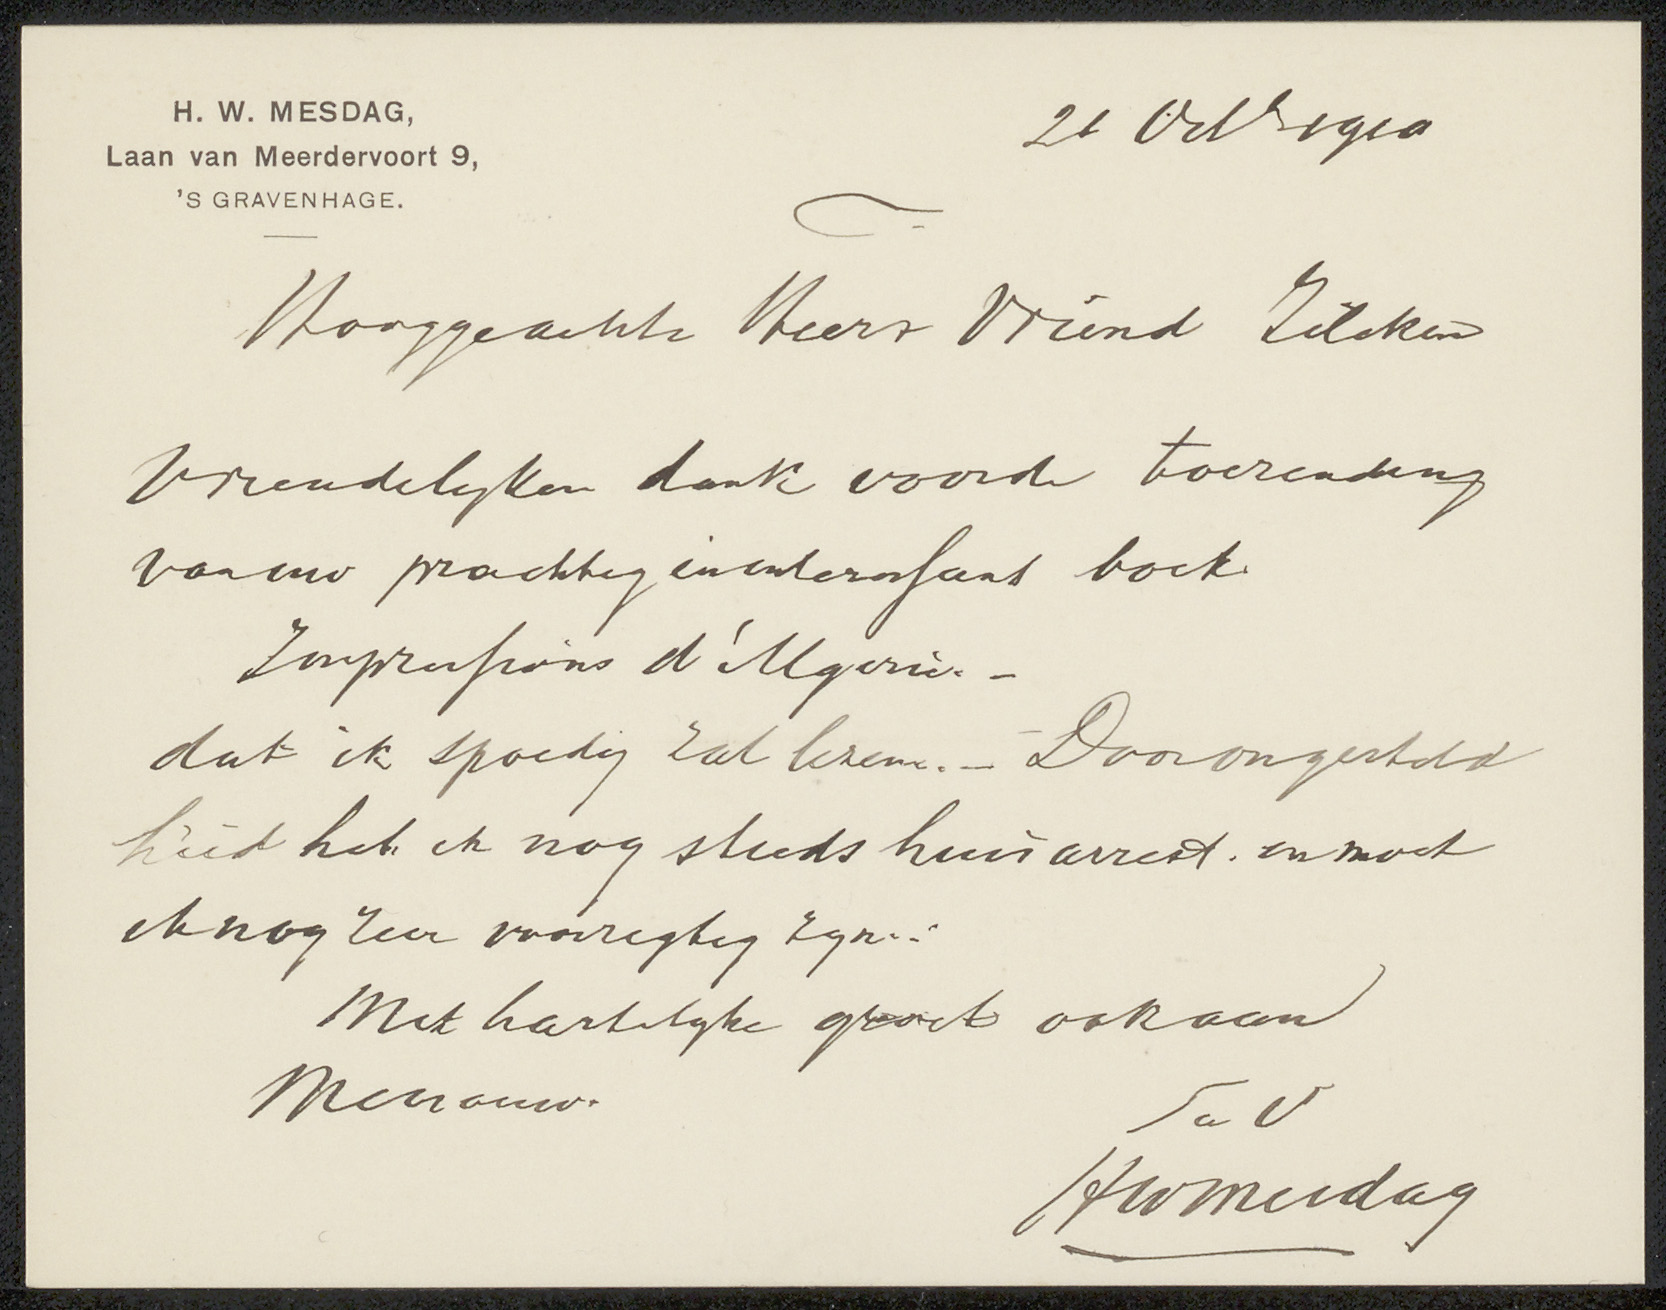 H. W. MESDAG,
Laan van Meerdervoort 9,
'S GRAVENHAGE.
21 Octr 1910
Hooggeachte Heer & Vriend Zilcken
Vriendelyken dank voor de toezending
van uw prachtig en interessant boek
Impressions d'Algerie. -
dat ik spoedig zal lezen. - Door ongesteld
heid heb ik nog steeds huisarrest. en moet
ik nog zeer voorzigtig zyn..
Met hartelyke groet ook aan
Mevrouw.
TaV
HWMesdag